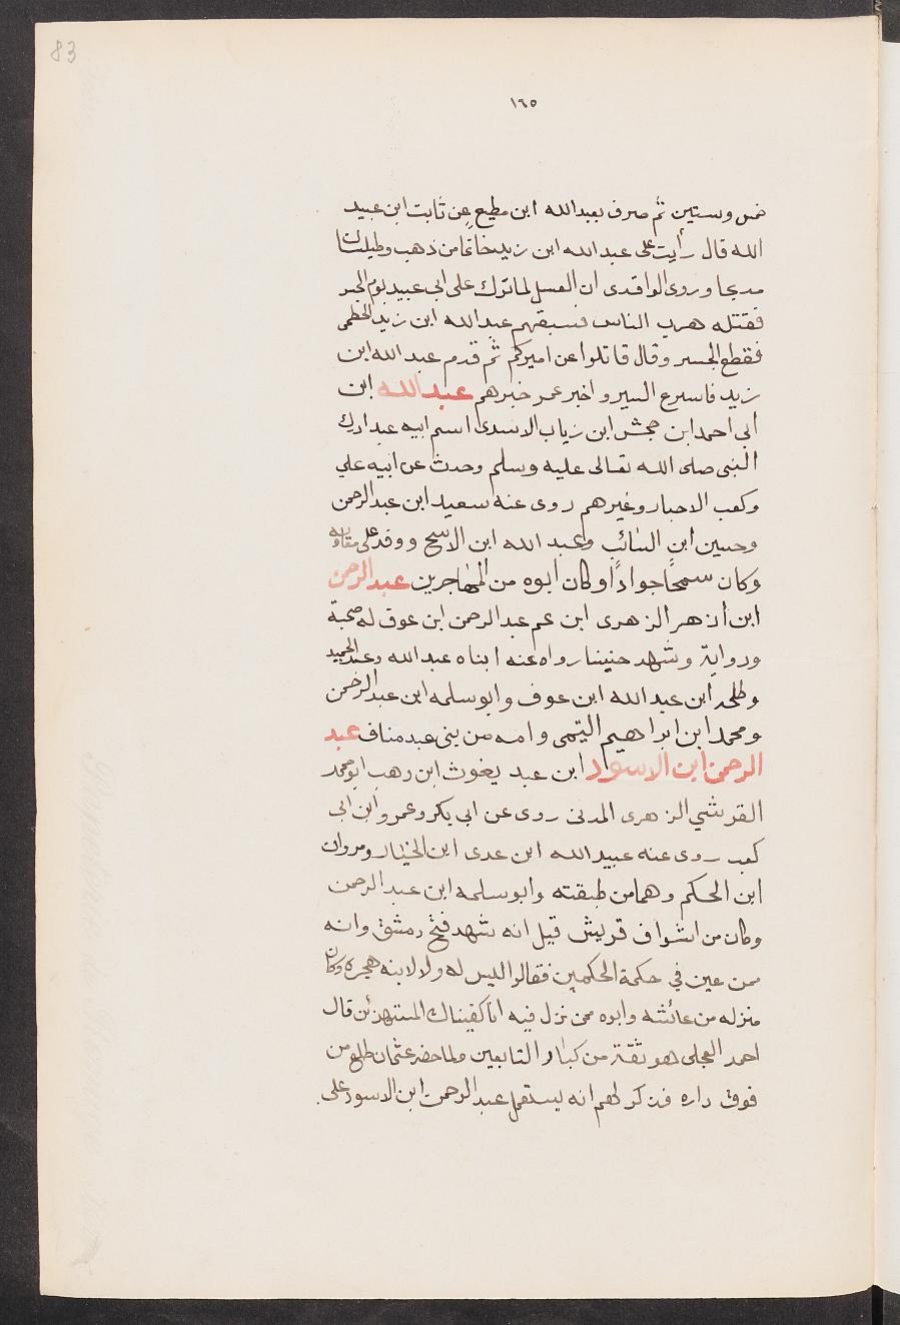 83
١٦٥
خمس وستين ثم صرف بعبدالله ابن مطيع عن ثابت ابن عبيد
الله قال رأيت على عبدالله ابن زيد خاتما من ذهب وطيلسان
مدبجا وروى الواقدى ان الفسل لما ترك على ابى عبيد يوم الجسر
فقتله هرب الناس فسبقهم عبدالله ابن زيد الخطمى
فقطع الجسر وقال قاتلوا عن اميركم ثم قدم عبدالله ابن
زيد فاسرع السير و اخبر عمر خبرهم عبدالله ابن
أبى احمد ابن جحش ابن رياب الاسدى اسم ابيه عبد ادرك
النبى صلى الله تعالى عليه وسلم وحدث عن ابيه علي
وكعب الاحبار وغيرهم روى عنه سعيد ابن عبدالرحمن
وحسين ابن السائب وعبد الله ابن الاشج ووفد على معاويه
وكان سمحًا جوادًا وكان أبوه من المهاجرين عبدالرحمن
ابن أزهر الزهرى ابن عم عبدالرحمن ابن عوف له صحبة
ورواية وشهد حنينا رواه عنه ابناه عبدالله وعبد الحميد
وطلحه ابن عبدالله ابن عوف وابو سلمه ابن عبدالرحمن
ومحمد ابن ابراهيم التيمى وامه من بنى عبد مناف عبد
الرحمن ابن الاسود ابن عبد يغوث ابن وهب ابومحمد
القرشي الزهرى المدنى روى عن ابى بكر وعمر وابن ابى
كعب روى عنه عبيدالله ابن عدى ابن الخيار ومروان
ابن الحكم وهما من طبقته وابو سلمه ابن عبدالرحمن
وكان من اشراف قريش قيل انه شهد فتح دمشق وانه
ممن عين في حكمة الحكمين فقالوا ليس له ولا لابنه هجره وكان
منزله من عائشه وابوه ممن نزل فيه انا كفيناك المستهزئن قال
احمد العجلى هو ثقة من كبار التابعين ولما حضر عثمان طلع من
فوق داره فذكر لهم انه يستعمل عبدالرحمن ابن الاسود على